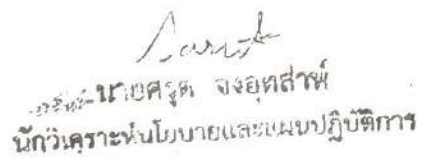 นายศรุต จงอุตส่าห์
นักวิเคราะห์นโยบายและแผนปฏิบัติการ